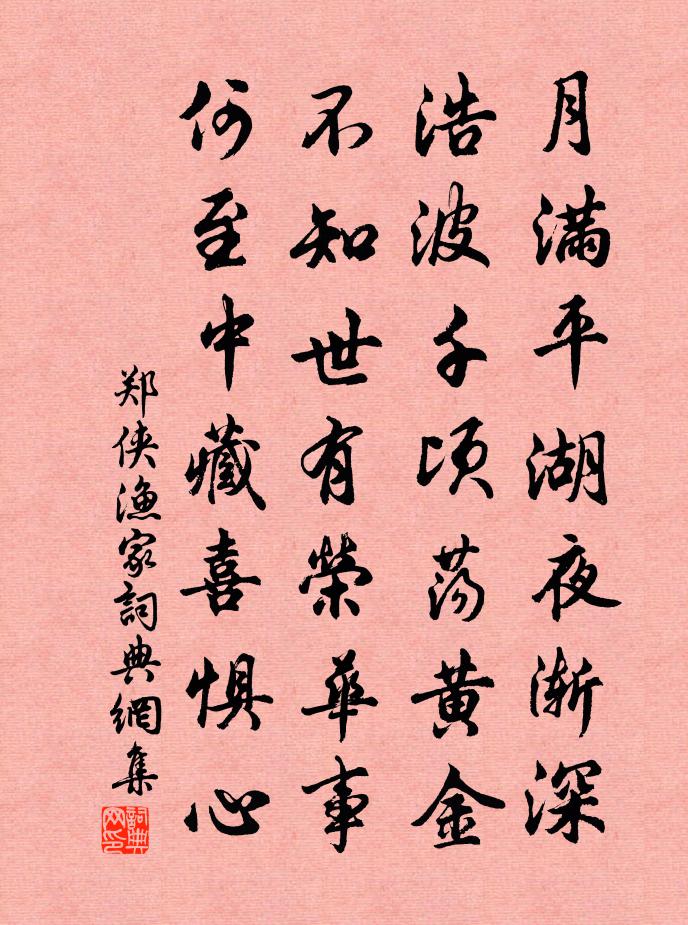 月满平湖夜渐深
浩波千顷荡黄金
不知世有荣华事
何至中藏喜惧心
郑侠渔家词典网集
词典网印